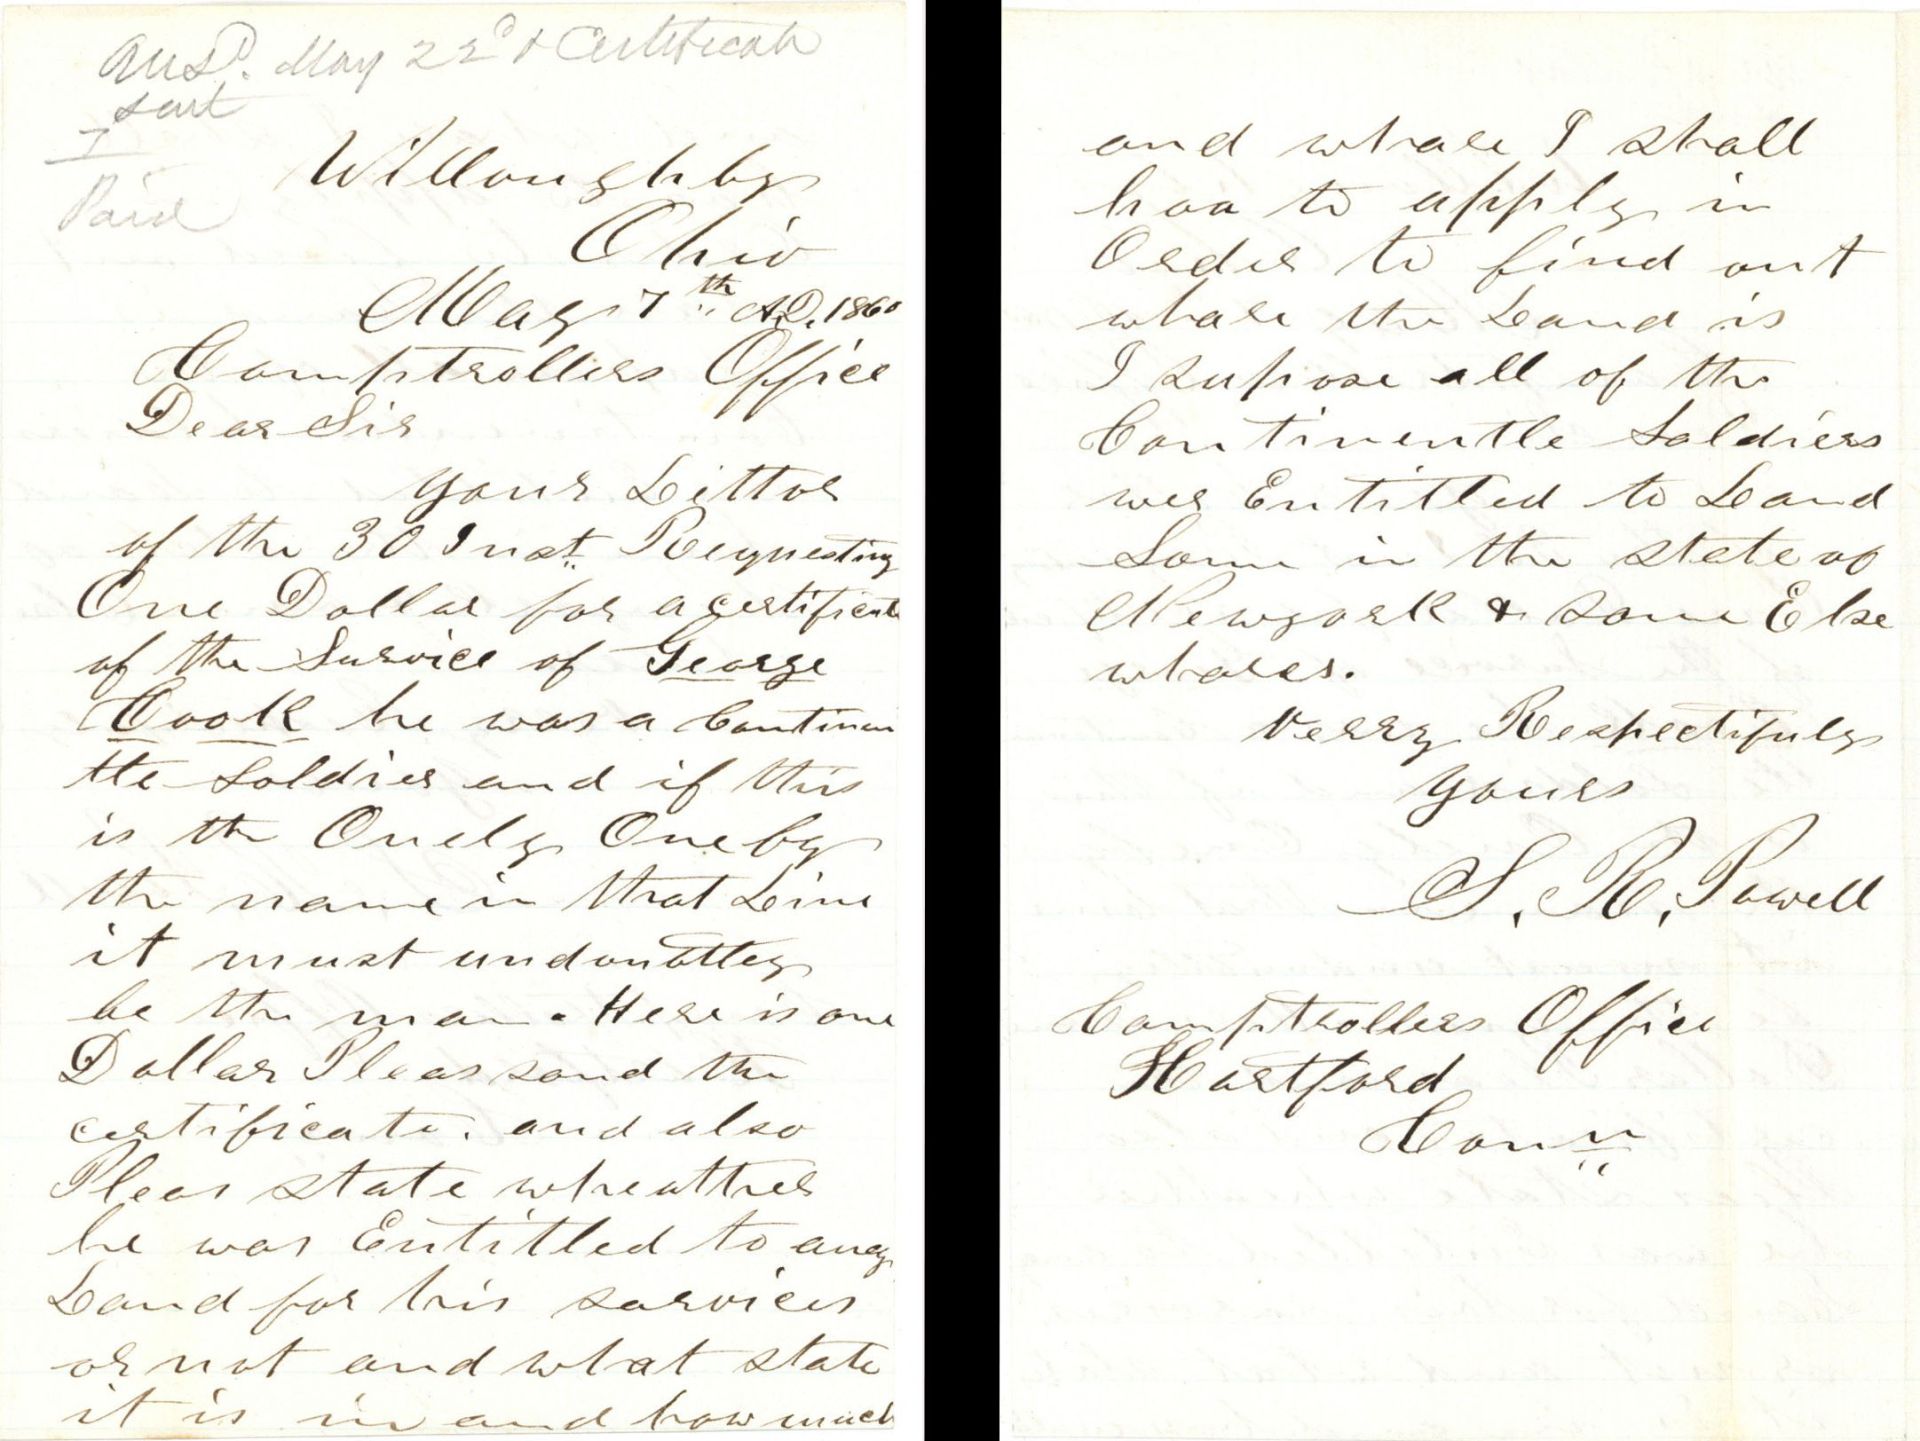 Ansd. May 22d & Certificate
sent
7
Paid
Willoughby
Ohio
May 7th A.D. 1860
Comptrollers Office
Dear Sir
your Letter
of the 30 Inst. Requesting
One Dollar for a certificate
of the Survice of George
Cook he was a Continen
tle Soldier and if this
is the Onely One by
the name in that Line
it must undouttley
be the man. Here is one
Dollar Pleas send the
certificate. and also
Pleas state wheather
he was Entitled to aney
Land for his services
or not and what state
it is in and how much
and whare I shall
hav to apply in
Order to find out
whare the Land is
I supose all of the
Continentle Soldiers
wer Entitled to Land
Some in the state of
Newyork & some Else
whares.
Verry Respectifuly
yours
S. R. Powell
Comptrollers Office
Hartford
Conn